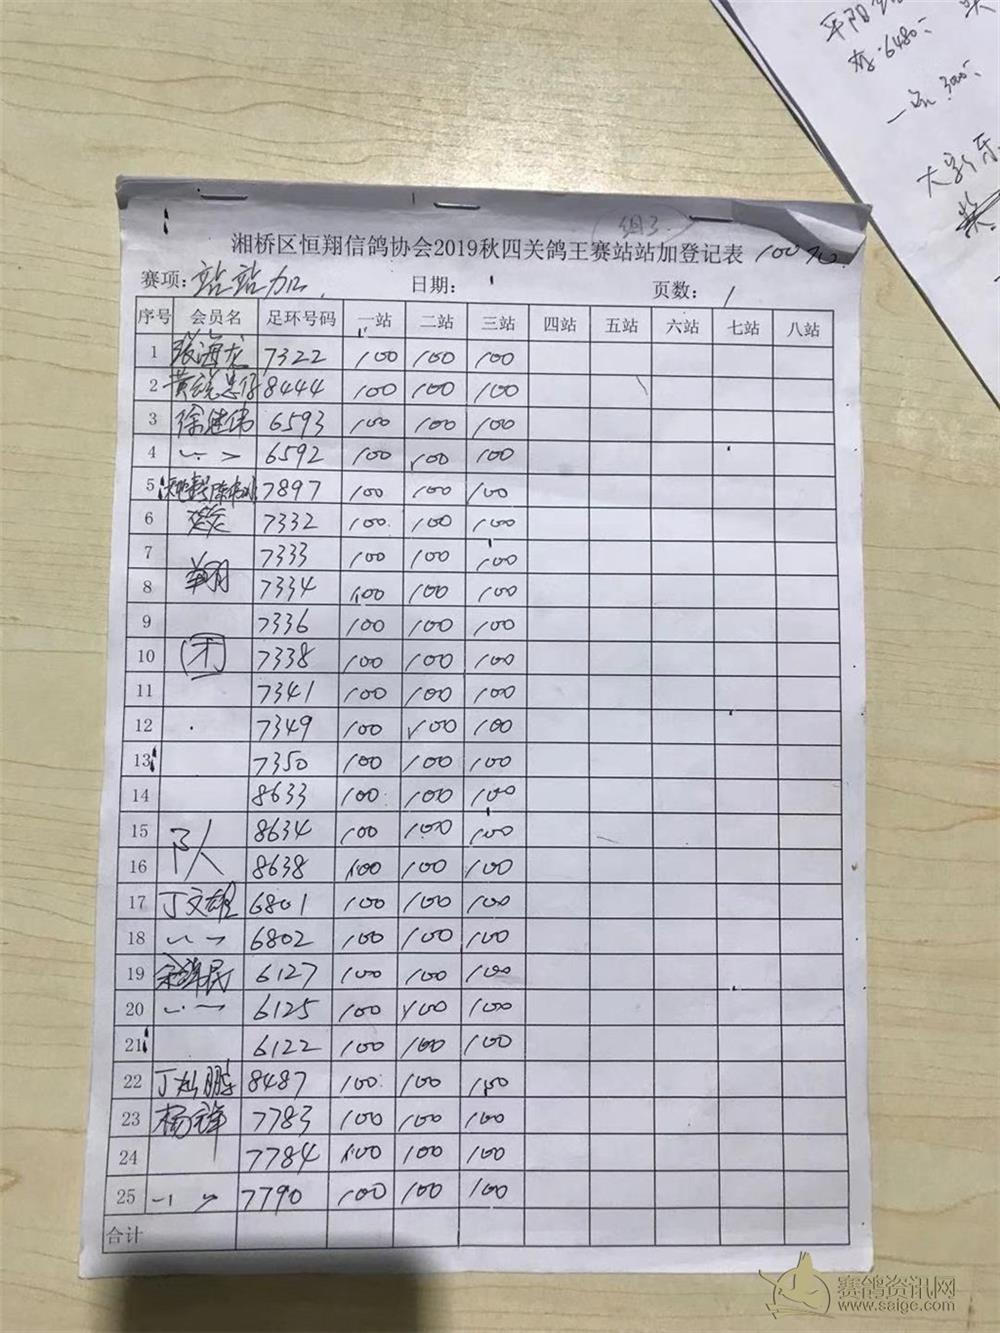 平阳
6480
一家300
大家乐
组3
湘桥区恒翔信鸽协会2019秋四关鸽王赛站站加登记表 100元
赛项: 站站加 日期: 页数: 1
序号 会员名 足环号码 一站 二站 三站 四站 五站 六站 七站 八站
1 张海龙 7322 100 100 100
2 8444 100 100 100
3 徐健伟 6593 100 100 100
4 〃 6592 100 100 100
5 7897 100 100 100
6 7332 100 100 100
7 7333 100 100 100
8 翔 7334 100 100 100
9 7336 100 100 100
10 (团) 7338 100 100 100
11 7341 100 100 100
12 7349 100 100 100
13 7350 100 100 100
14 8633 100 100 100
15 队 8634 100 100 100
16 8638 100 100 100
17 丁文雄 6801 100 100 100
18 〃 6802 100 100 100
19 6127 100 100 100
20 〃 6125 100 100 100
21 6122 100 100 100
22 丁灿鹏 8487 100 100 100
23 杨祥 7783 100 100 100
24 7784 100 100 100
25 〃 7790 100 100 100
合计
赛鸽资讯网
www.saige.com